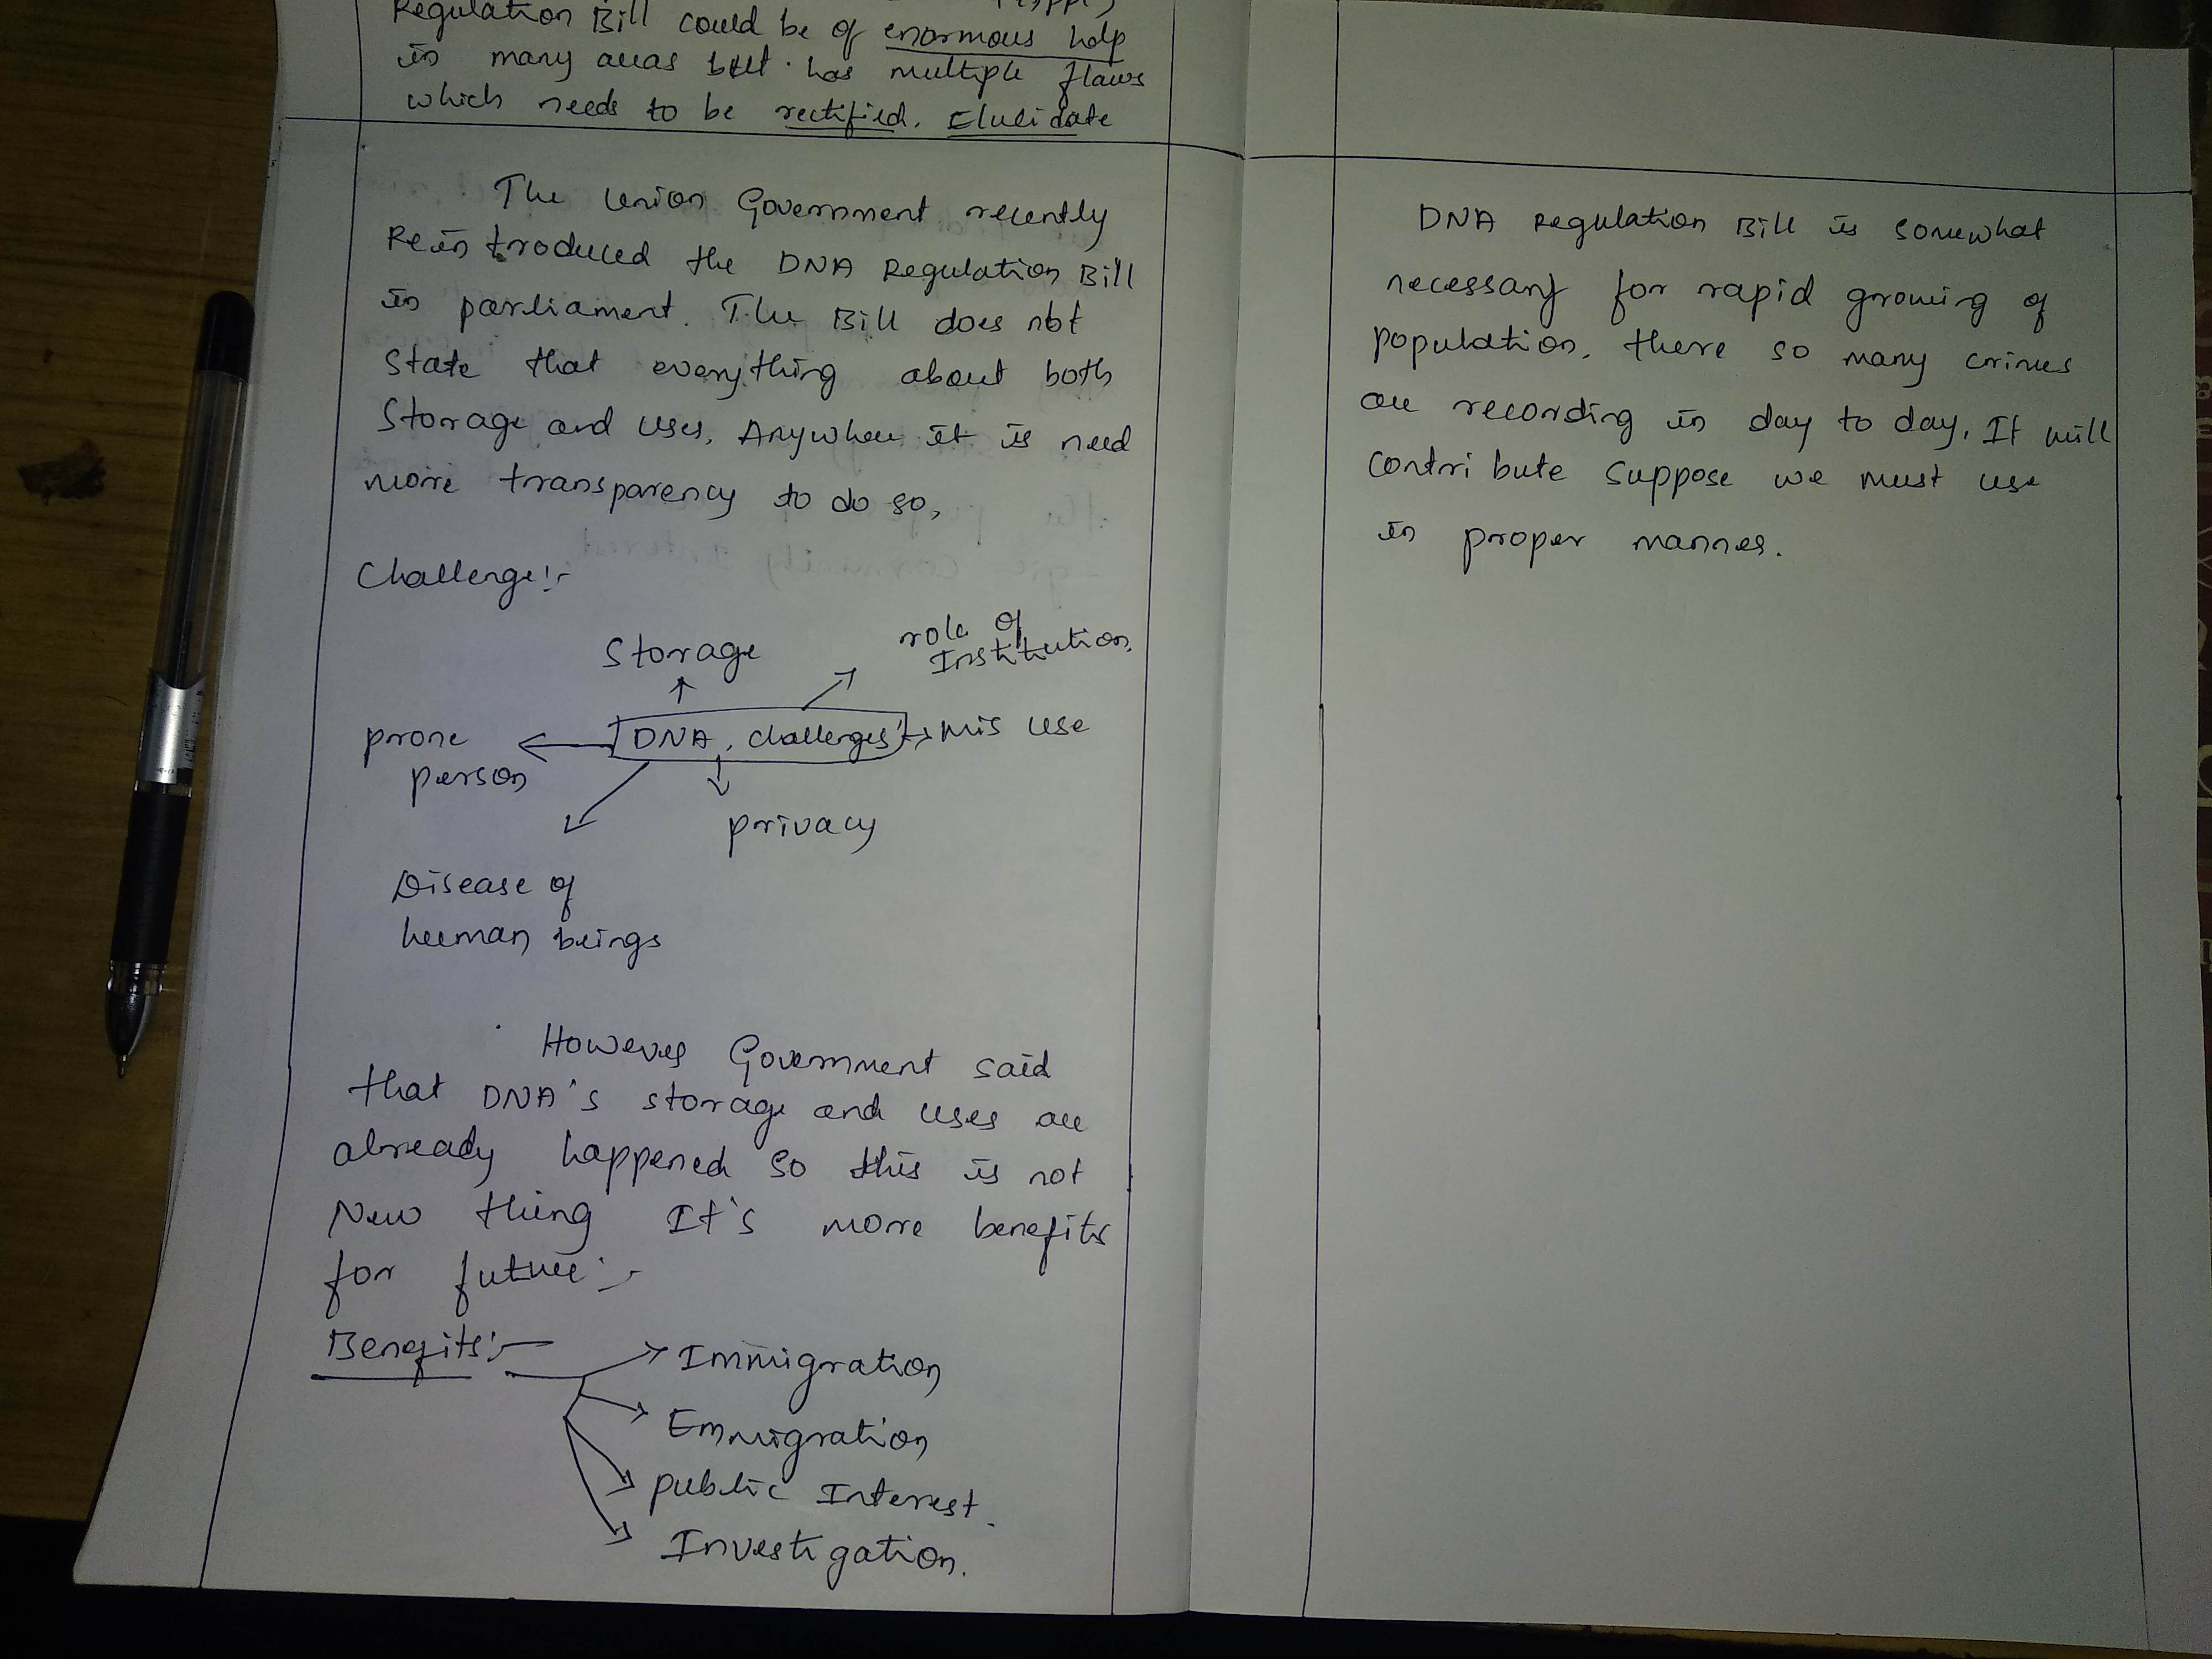 Regulation Bill could be of enormous help
in many areas but has multiple flaws
which needs to be rectified. Elucidate
The Union Government recently
Reintroduced the DNA Regulation Bill
in parliament. The Bill does not
state that everything about both
Storage and Uses, Anywhere it is need
more transparency to do so,
Challenge:-
Storage
role of
Institution
prone
person
DNA, challenges
Mis Use
privacy
Disease of
human beings
However Government said
that DNA's storage and uses are
already happened so this is not
New thing It's more benefits
for future:-
Benefits:-
Immigration
Emmigration
public Interest.
Investigation.
DNA Regulation Bill is somewhat
necessary for rapid growing of
population, there so many crimes
are recording in day to day, It will
contribute suppose we must use
in proper manner.